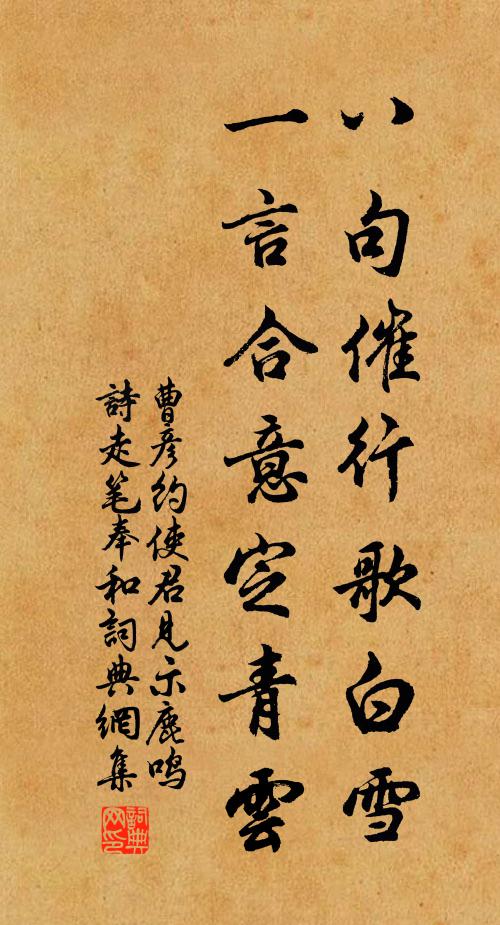 八句催行歌白雪
一言合意定青雲
曹彦約使君見示鹿鳴
詩走笔奉和詞典網集
詞典
网印